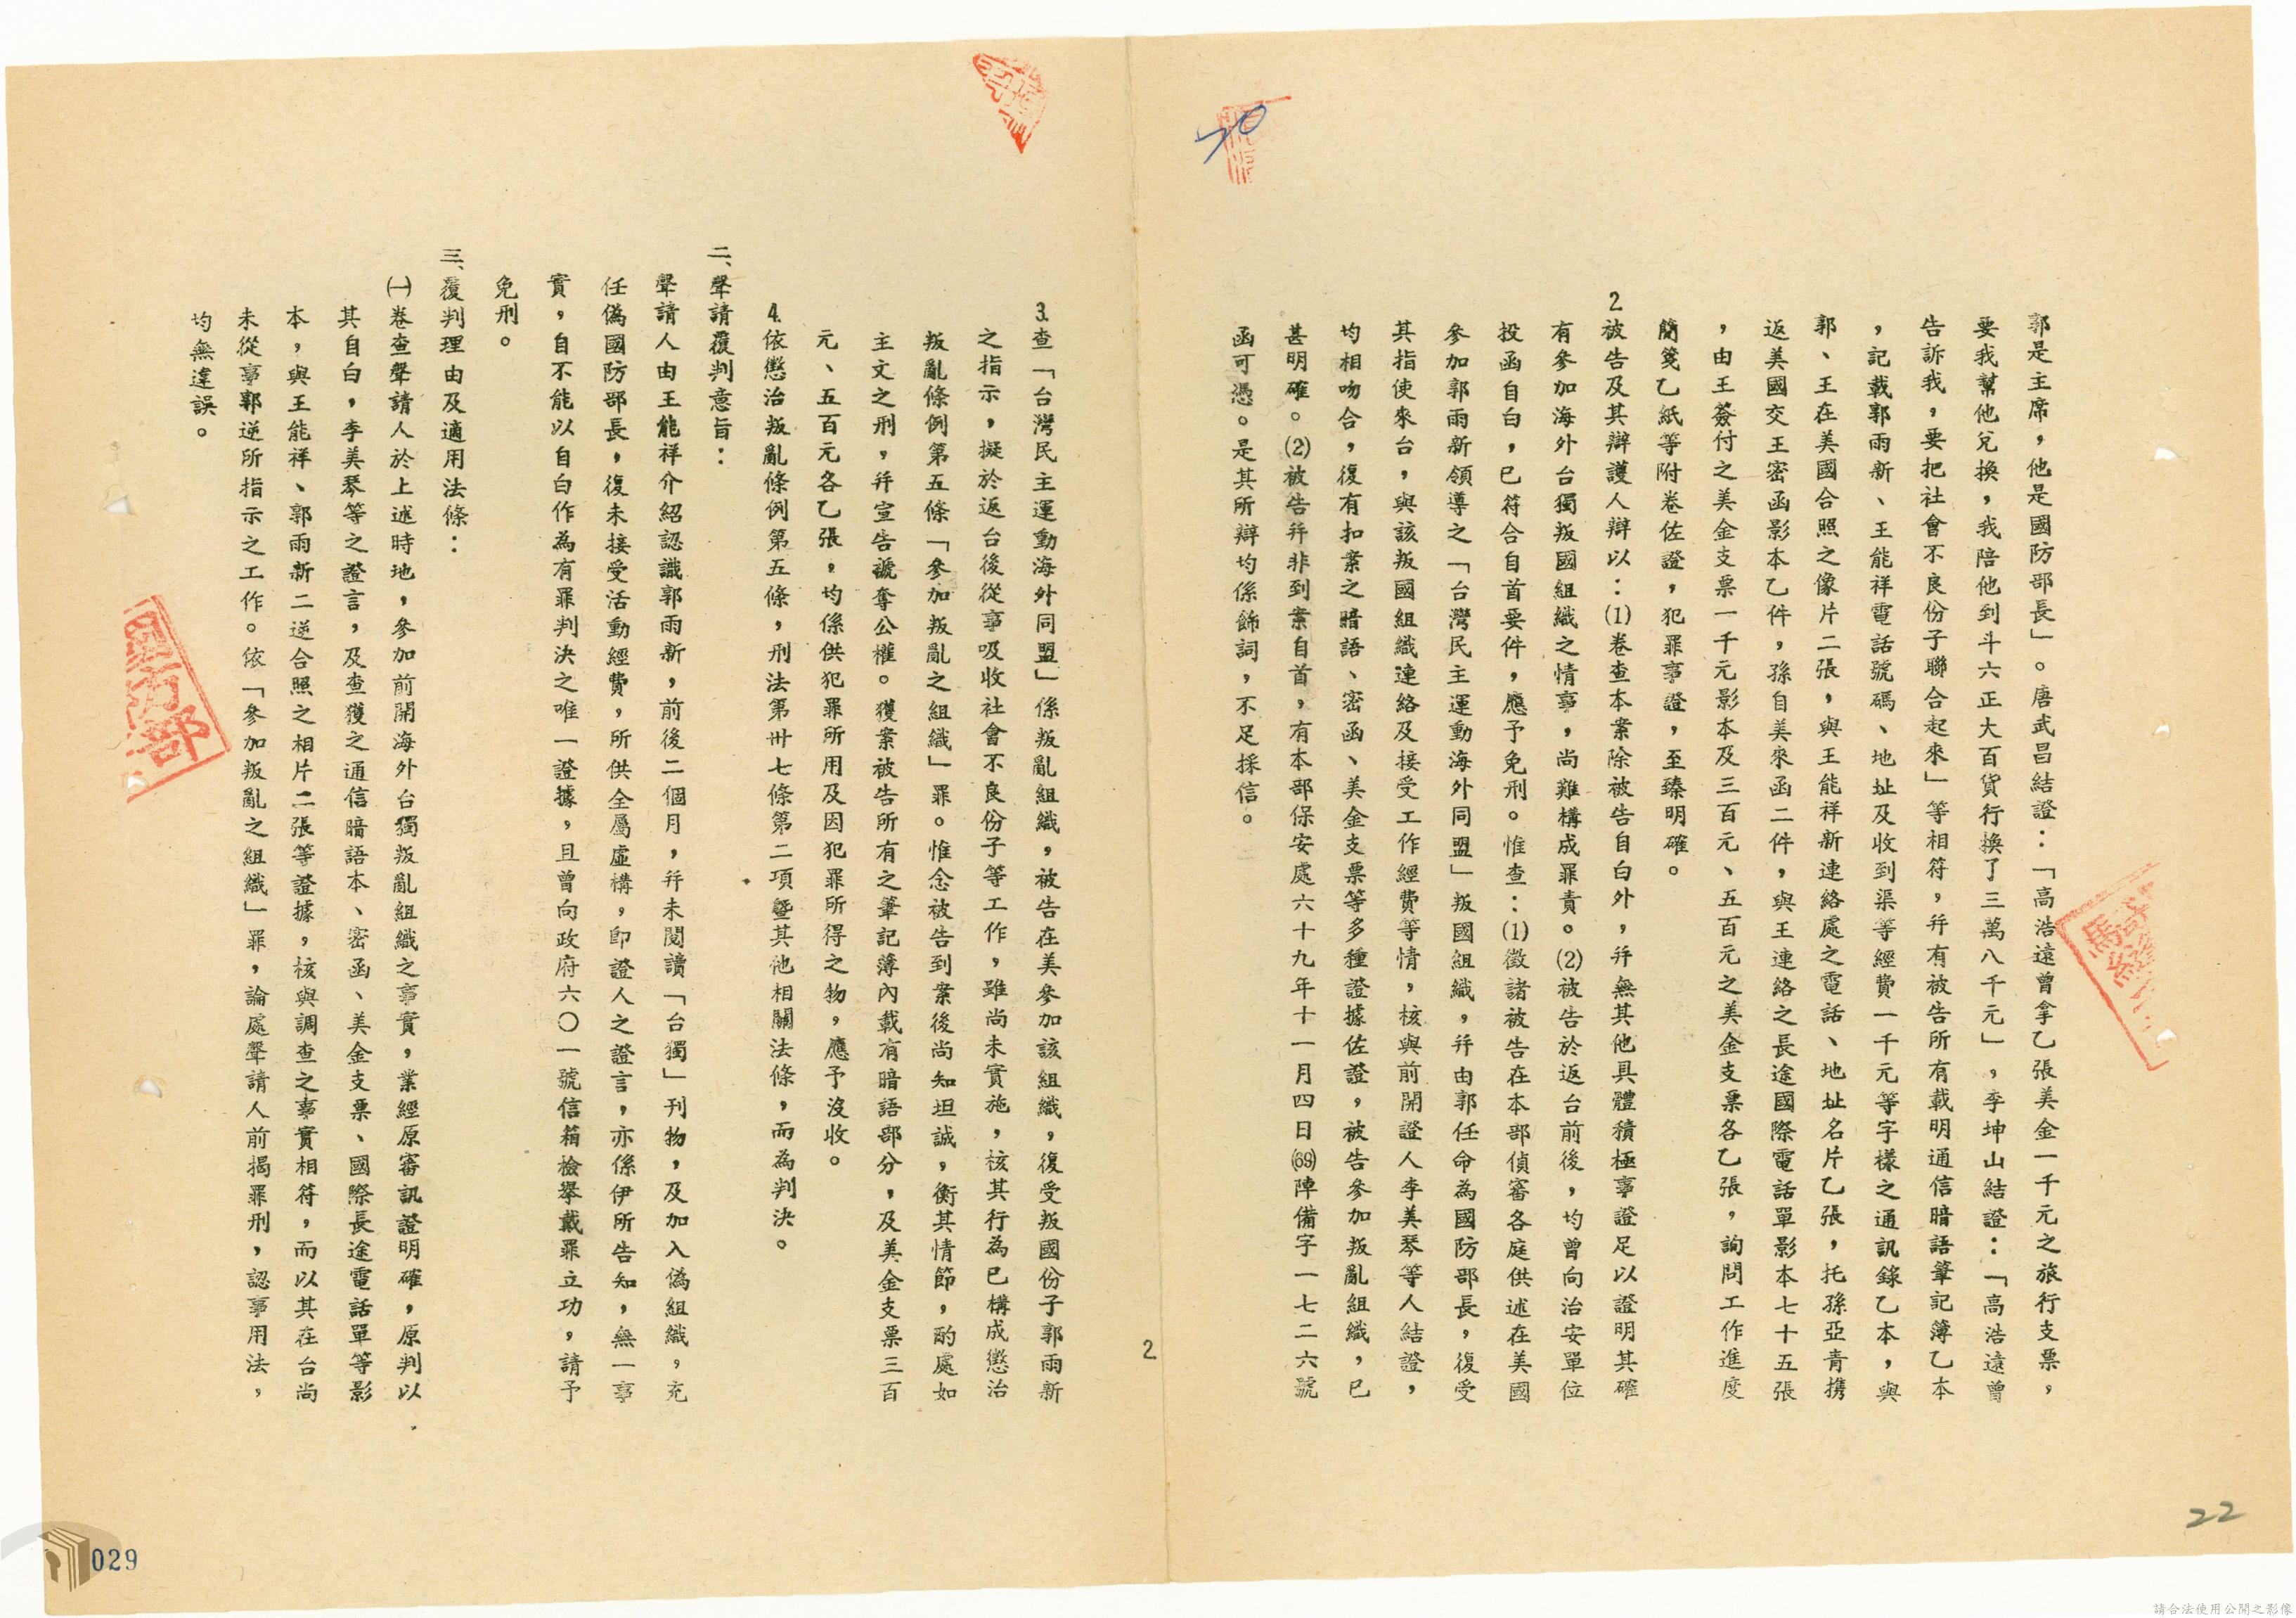 郭是主席,他是國防部長」。唐武昌結證:「高浩遠曾拿乙張美金一千元之旅行支票,
要我幫他兌換,我陪他到斗六正大百貨行換了三萬八千元」,李坤山結證:「高浩遠曾
告訴我,要把社會不良份子聯合起來」等相符,幷有被告所有載明通信暗語筆記簿乙本
,記載郭雨新、王能祥電話號碼、地址及收到渠等經費一千元等字樣之通訊錄乙本,與
郭、王在美國合照之像片二張,與王能祥新連絡處之電話、地址名片乙張,托孫亞青携
返美國交王密函影本乙件,孫自美來函二件,與王連絡之長途國際電話單影本七十五張
,由王簽付之美金支票一千元影本及三百元、五百元之美金支票各乙張,詢問工作進度
簡箋乙紙等附卷佐證,犯罪事證,至臻明確。
2被告及其辯護人辯以:⑴卷查本案除被告自白外,幷無其他具體積極事證足以證明其確
有參加海外台獨叛國組織之情事,尚難構成罪責。⑵被告於返台前後,均曾向治安單位
投函自白,已符合自首要件,應予免刑。惟查:⑴徵諸被告在本部偵審各庭供述在美國
參加郭雨新領導之「台灣民主運動海外同盟」叛國組織,幷由郭任命為國防部長,復受
其指使來台,與該叛國組織連絡及接受工作經費等情,核與前開證人李美琴等人結證,
均相吻合,復有扣案之暗語、密函、美金支票等多種證據佐證,被告參加叛亂組織,已
甚明確。⑵被告幷非到案自首,有本部保安處六十九年十一月四日(69)陣備字一七二六號
函可憑。是其所辯均係飾詞,不足採信。
2
3.查「台灣民主運動海外同盟」係叛亂組織,被告在美參加該組織,復受叛國份子郭雨新
之指示,擬於返台後從事吸收社會不良份子等工作,雖尚未實施,核其行為已構成懲治
叛亂條例第五條「參加叛亂之組織」罪。惟念被告到案後尚知坦誠,衡其情節,酌處如
主文之刑,幷宣告褫奪公權。獲案被告所有之筆記簿內載有暗語部分,及美金支票三百
元、五百元各乙張,均係供犯罪所用及因犯罪所得之物,應予沒收。
4.依懲治叛亂條例第五條,刑法第卅七條第二項暨其他相關法條,而為判決。
二、聲請覆判意旨:
聲請人由王能祥介紹認識郭雨新,前後二個月,幷未閱讀「台獨」刊物,及加入偽組織,充
任偽國防部長,復未接受活動經費,所供全屬虛構,卽證人之證言,亦係伊所告知,無一事
實,自不能以自白作為有罪判決之唯一證據,且曾向政府六〇一號信箱檢舉戴罪立功,請予
免刑。
三、覆判理由及適用法條:
㈠卷查聲請人於上述時地,參加前開海外台獨叛亂組織之事實,業經原審訊證明確,原判以
其自白,李美琴等之證言,及查獲之通信暗語本、密函、美金支票、國際長途電話單等影
本,與王能祥、郭雨新二逆合照之相片二張等證據,核與調查之事實相符,而以其在台尚
未從事郭逆所指示之工作。依「參加叛亂之組織」罪,論處聲請人前揭罪刑,認事用法,
均無違誤。
國防部
22
029
請合法使用公開之影像